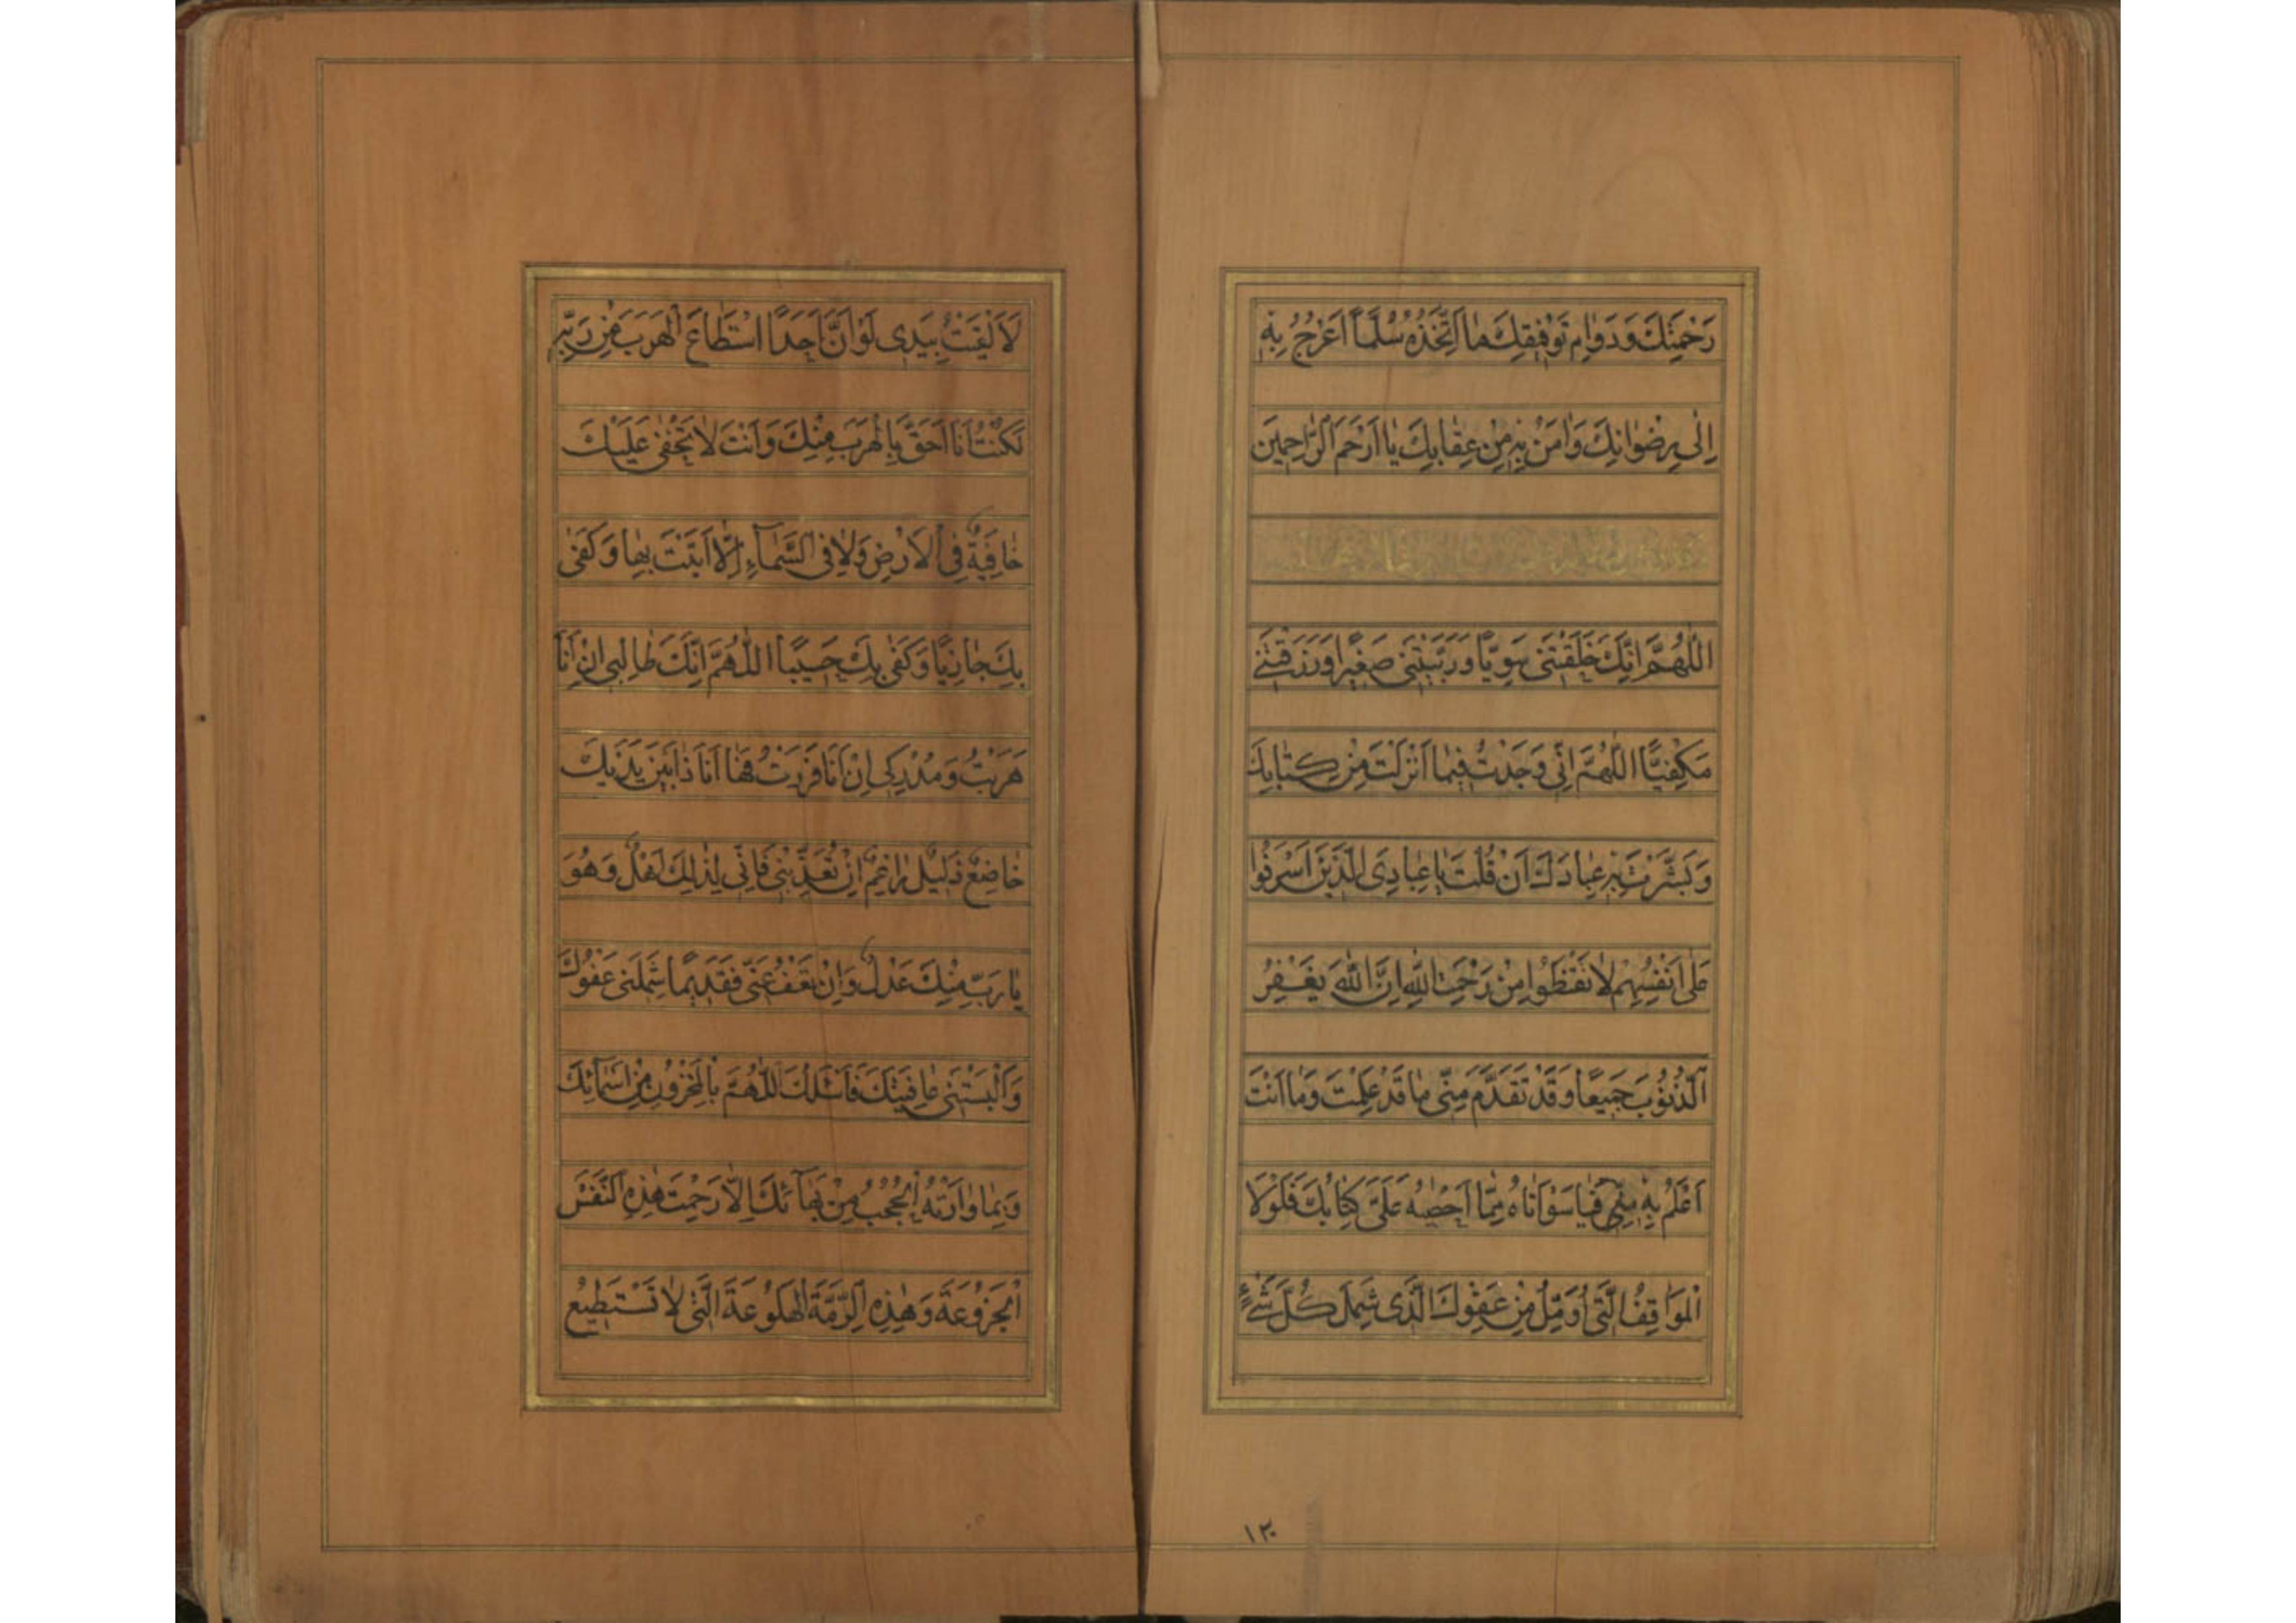 رَحْمَتِكَ وَدَوَامِ تَوْفِيقِكَ مَا اَتَّخِذُهُ سُلَّماً اَعْرُجُ بِهِ
اِلٰى رِضْوٰانِكَ وَاٰمَنُ بِهِ مِنْ عِقٰابِكَ يٰا اَرْحَمَ الرّٰاحِمينَ
اَللّٰهُمَّ اِنَّكَ خَلَقْتَنى سَوِيّاً وَرَبَّيْتَنى صَغيراً وَرَزَقْتَنى
مَكْفِيّاً اَللّٰهُمَّ اِنّى وَجَدْتُ فيمٰا اَنْزَلْتَ مِنْ كِتٰابِكَ
وَبَشَّرْتَ بِهِ عِبٰادَكَ اَنْ قُلْتَ يٰا عِبٰادِىَ الَّذينَ اَسْرَفُوا
عَلٰى اَنْفُسِهِمْ لاٰ تَقْنَطُوا مِنْ رَحْمَةِ اللّٰهِ اِنَّ اللّٰهَ يَغْفِرُ
الذُّنُوبَ جَميعاً وَقَدْ تَقَدَّمَ مِنّى مٰا قَدْ عَلِمْتَ وَمٰا اَنْتَ
اَعْلَمُ بِهِ مِنّى فَيٰا سَوْاَتٰاهُ مِمّٰا اَحْصٰهُ عَلَىَّ كِتٰابُكَ فَلَوْلاٰ
الْمَوٰاقِفُ الَّتى اُؤَمِّلُ مِنْ عَفْوِكَ الَّذى شَمِلَ كُلَّ شَىْءٍ
لَاَلْقَيْتُ بِيَدى لَوْ اَنَّ اَحَداً اسْتَطٰاعَ الْهَرَبَ مِنْ رَبِّهِ
لَكُنْتُ اَنَا اَحَقَّ بِالْهَرَبِ مِنْكَ وَاَنْتَ لاٰ تَخْفٰى عَلَيْكَ
خٰافِيَةٌ فِى الْاَرْضِ وَلاٰ فِى السَّمٰآءِ اِلاّٰ اَتَيْتَ بِهٰا وَكَفٰى
بِكَ جٰازِياً وَكَفٰى بِكَ حَسيباً اَللّٰهُمَّ اِنَّكَ طٰالِبى اِنْ اَنَا
هَرَبْتُ وَمُدْرِكى اِنْ اَنَا فَرَرْتُ فَهٰا اَنَا ذٰا بَيْنَ يَدَيْكَ
خٰاضِعٌ ذَليلٌ رٰاغِمٌ اِنْ تُعَذِّبْنى فَاِنّى لِذٰلِكَ اَهْلٌ وَهُوَ
يٰا رَبِّ مِنْكَ عَدْلٌ وَاِنْ تَعْفُ عَنّى فَقَديماً شَمَلَنى عَفْوُكَ
وَاَلْبَسْتَنى عٰافِيَتَكَ فَاَسْئَلُكَ اَللّٰهُمَّ بِالْمَخْزُونِ مِنْ اَسْمٰآئِكَ
وَبِمٰا وٰارَتْهُ الْحُجُبُ مِنْ بَهٰآئِكَ اِلاّٰ رَحِمْتَ هٰذِهِ النَّفْسَ
الْجَزُوعَةَ وَهٰذِهِ الرِّمَّةَ الْهَلُوعَةَ الَّتى لاٰ تَسْتَطيعُ